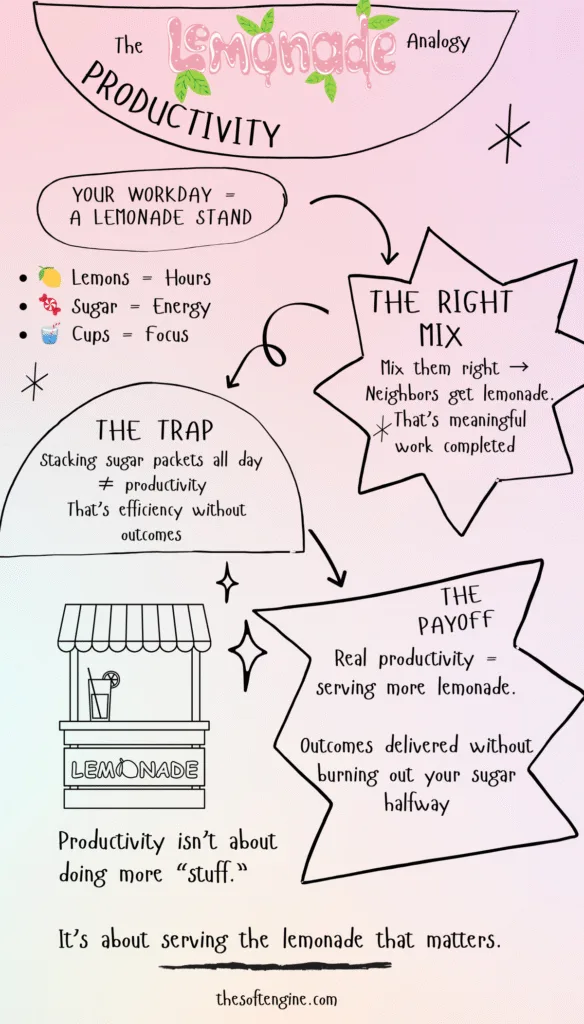 The Lemonade Analogy
PRODUCTIVITY
YOUR WORKDAY =
A LEMONADE STAND
• 🍋 Lemons = Hours
• 🍬 Sugar = Energy
• 🥤 Cups = Focus
THE RIGHT
MIX
Mix them right →
Neighbors get lemonade.
That's meaningful
work completed
THE TRAP
Stacking sugar packets all day
≠ productivity
That's efficiency without
outcomes
THE
PAYOFF
Real productivity =
serving more lemonade.
Outcomes delivered without
burning out your sugar
halfway
LEMONADE
Productivity isn't about
doing more “stuff.”
It's about serving the lemonade that matters.
thesoftengine.com